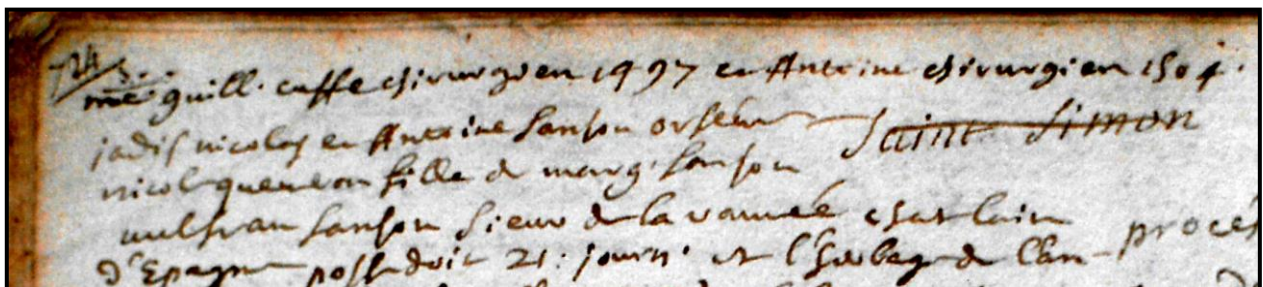 724
me guill. caffe chirurgien 1497 et Anthoine chirurgien 1504.
jadis nicolas et Anthoine sanson orfeur Saint Simon
nicol quenson fille de marg. sanson
vulfran sanson sieur de la vamée chatelain
d'Epagne possedoit 21: journ. et l'herbage de l'an- procés